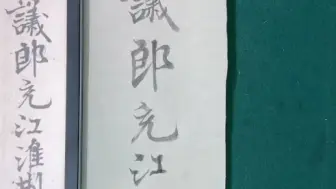 議郎充江淮荆
議郎充江